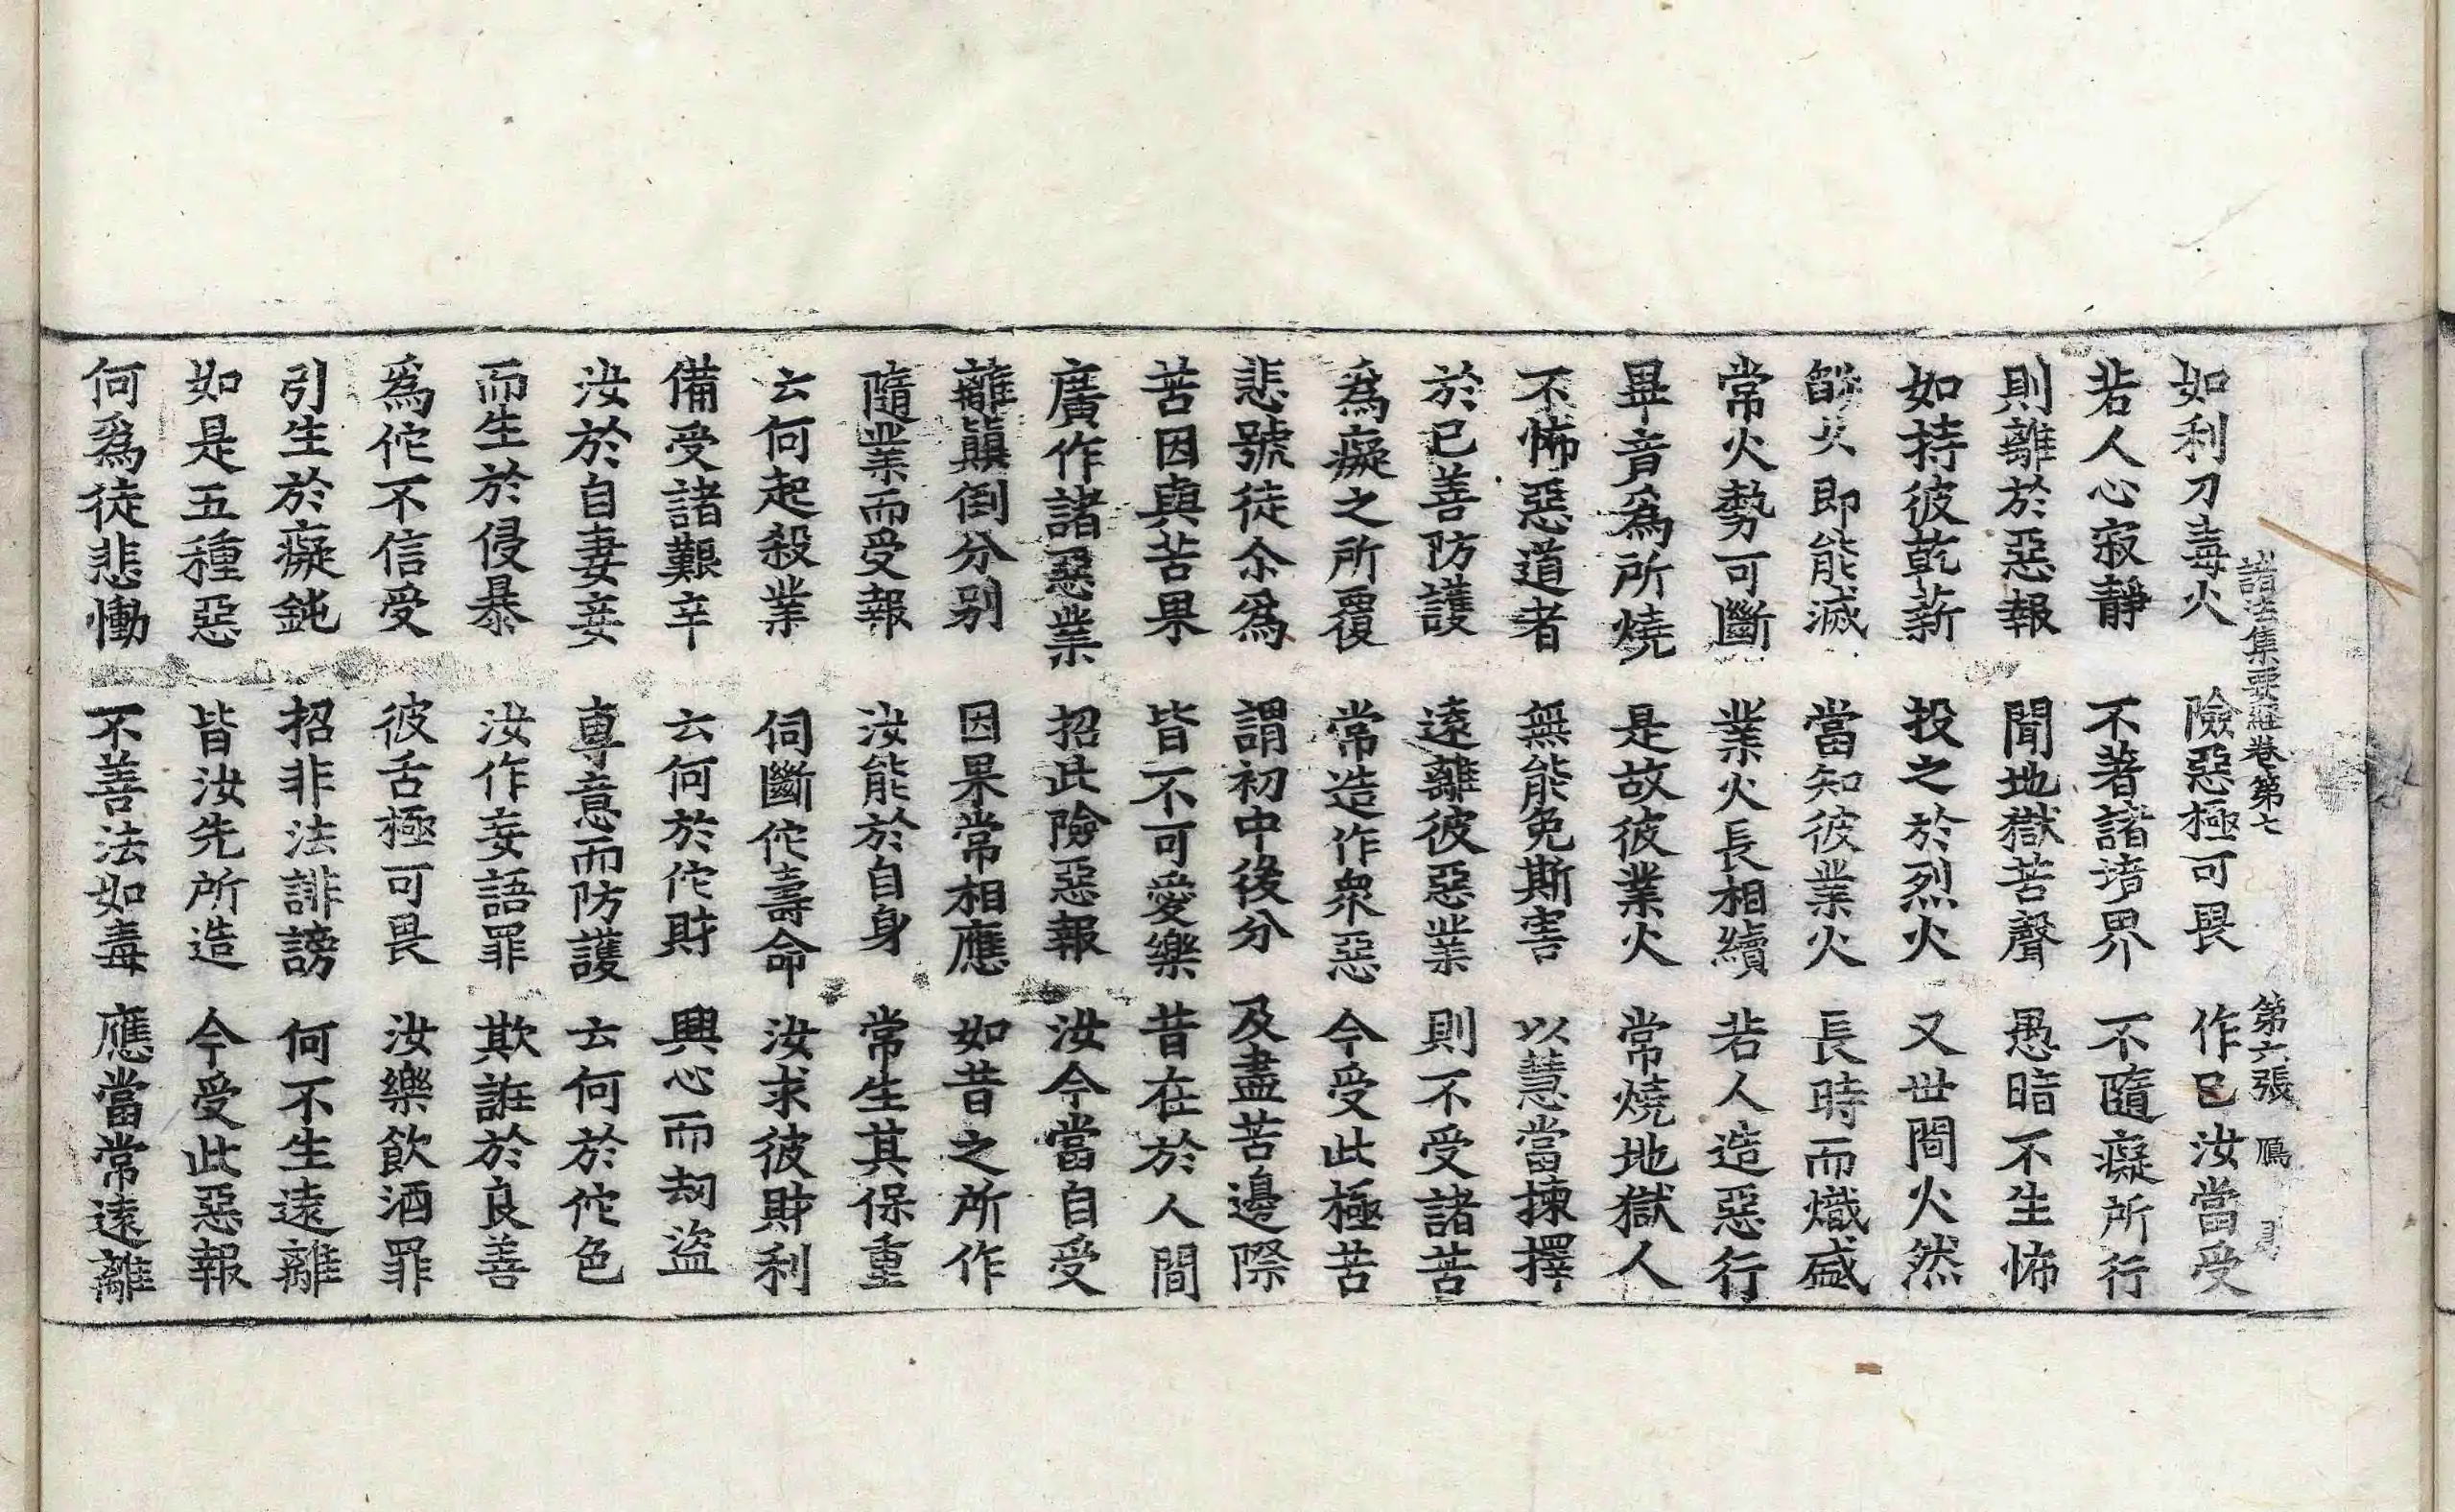 諸法集要經卷第七　第六張　鴈
如利刀毒火　險惡極可畏　作已汝當受
若人心寂靜　不著諸境界　不隨癡所行
則離於惡報　聞地獄苦聲　愚暗不生怖
如持彼乾薪　投之於烈火　又世間火然
皆火即能滅　當知彼業火　長時而熾盛
常火勢可斷　業火長相續　若人造惡行
畢竟爲所燒　是故彼業火　常燒地獄人
不怖惡道者　無能免斯害　以慧當揀擇
於已善防護　遠離彼惡業　則不受諸苦
爲癡之所覆　常造作衆惡　今受此極苦
悲號徒尒爲　謂初中後分　及盡苦邊際
苦因與苦果　皆不可愛樂　昔在於人間
廣作諸惡業　招此險惡報　汝今當自受
離顚倒分別　因果常相應　如昔之所作
隨業而受報　汝能於自身　常生其保重
云何起殺業　伺斷佗壽命　汝求彼財利
備受諸艱辛　云何於佗財　興心而刼盜
汝於自妻妾　專意而防護　云何於佗色
而生於侵暴　汝作妄語罪　欺誑於良善
爲佗不信受　彼舌極可畏　汝樂飲酒罪
引生於癡鈍　招非法誹謗　何不生遠離
如是五種惡　皆汝先所造　今受此惡報
何爲徒悲慟　不善法如毒　應當常遠離